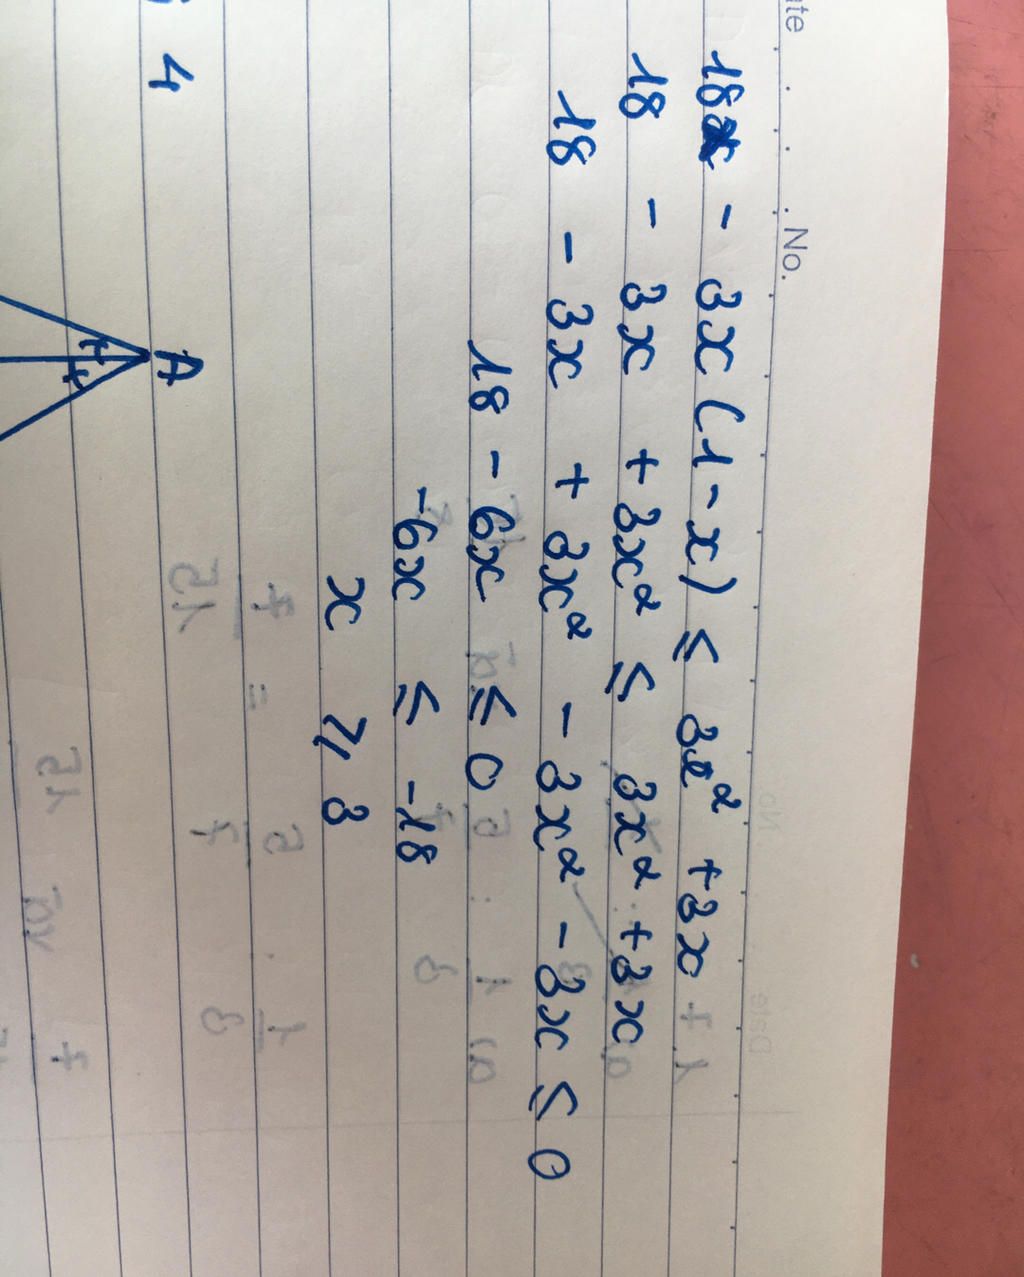 No.
18 - 3x (1-x) ≤ 3x² +3x
18 - 3x + 3x² ≤ 3x² +3x
18 - 3x + 3x² - 3x² - 3x ≤ 0
18 - 6x ≤ 0
-6x ≤ -18
x ≥ 3
4
A